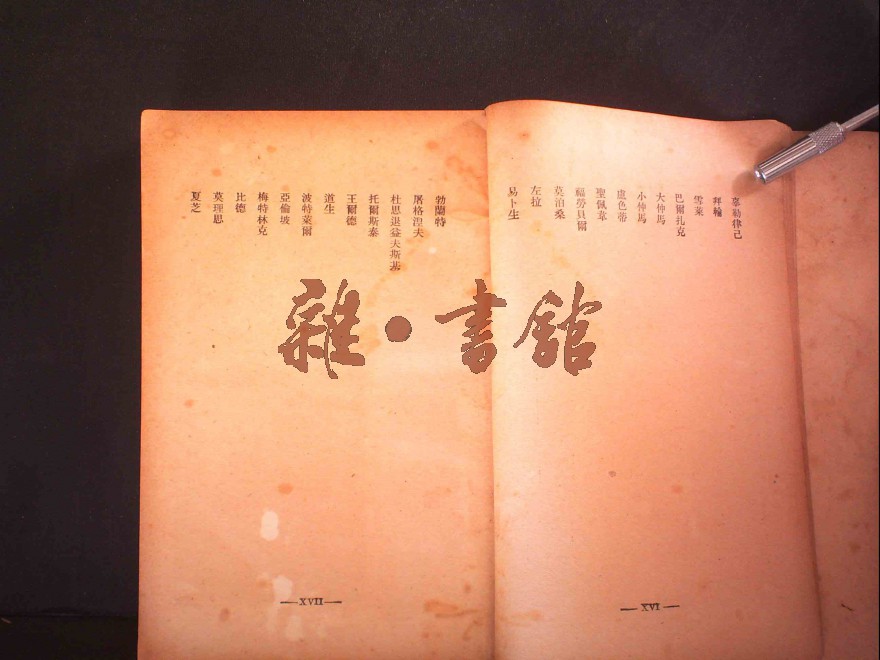 辜勒律己
拜輪
雪萊
巴爾扎克
大仲馬
小仲馬
盧色蒂
聖佩韋
福勞貝爾
莫泊桑
左拉
易卜生
—XVI—
勃蘭特
屠格涅夫
杜思退益夫斯基
托爾斯泰
王爾德
道生
波特萊爾
亞倫坡
梅特林克
比德
莫理思
夏芝
—XVII—
雜·書館